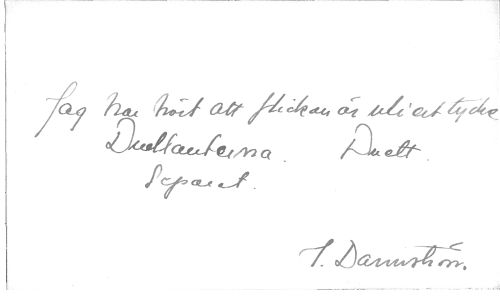 Jag har hört att flickan är
Duellanterna. Duett.
Separat.
T. Dannström.